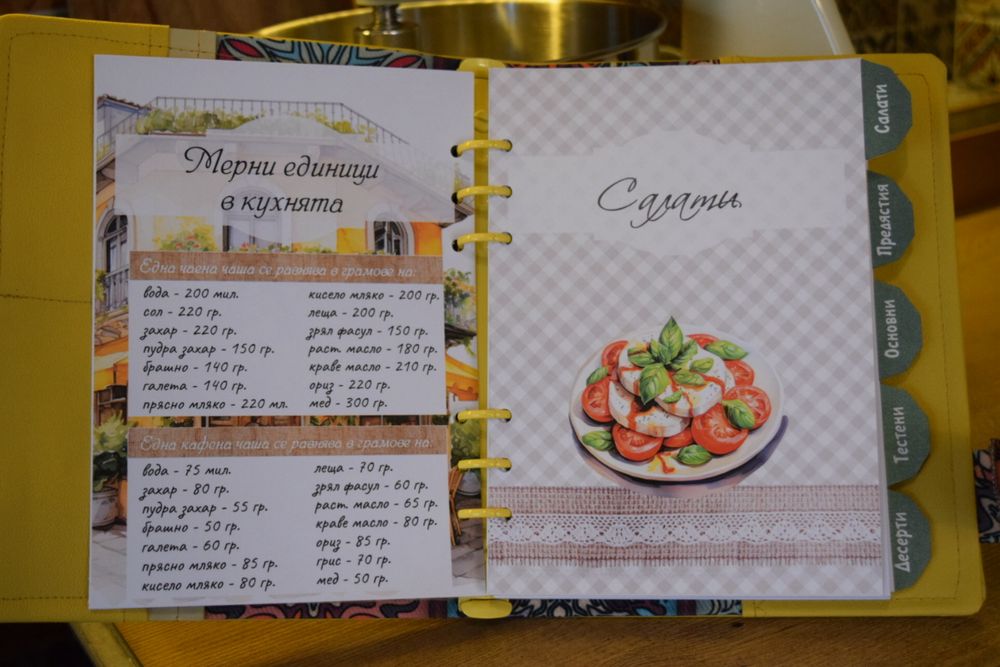 Мерни единици
в кухнята
Една чаена чаша се равнява в грамове на:
вода - 200 мил.
сол - 220 гр.
захар - 220 гр.
пудра захар - 150 гр.
брашно - 140 гр.
галета - 140 гр.
прясно мляко - 220 мл.
кисело мляко - 200 гр.
леща - 200 гр.
зрял фасул - 150 гр.
раст. масло - 180 гр.
краве масло - 210 гр.
ориз - 220 гр.
мед - 300 гр.
Една кафена чаша се равнява в грамове на:
вода - 75 мил.
захар - 80 гр.
пудра захар - 55 гр.
брашно - 50 гр.
галета - 60 гр.
прясно мляко - 85 гр.
кисело мляко - 80 гр.
леща - 70 гр.
зрял фасул - 60 гр.
раст. масло - 65 гр.
краве масло - 80 гр.
ориз - 85 гр.
грис - 70 гр.
мед - 50 гр.
Салати
Салати
Предястия
Основни
Тестени
Десерти